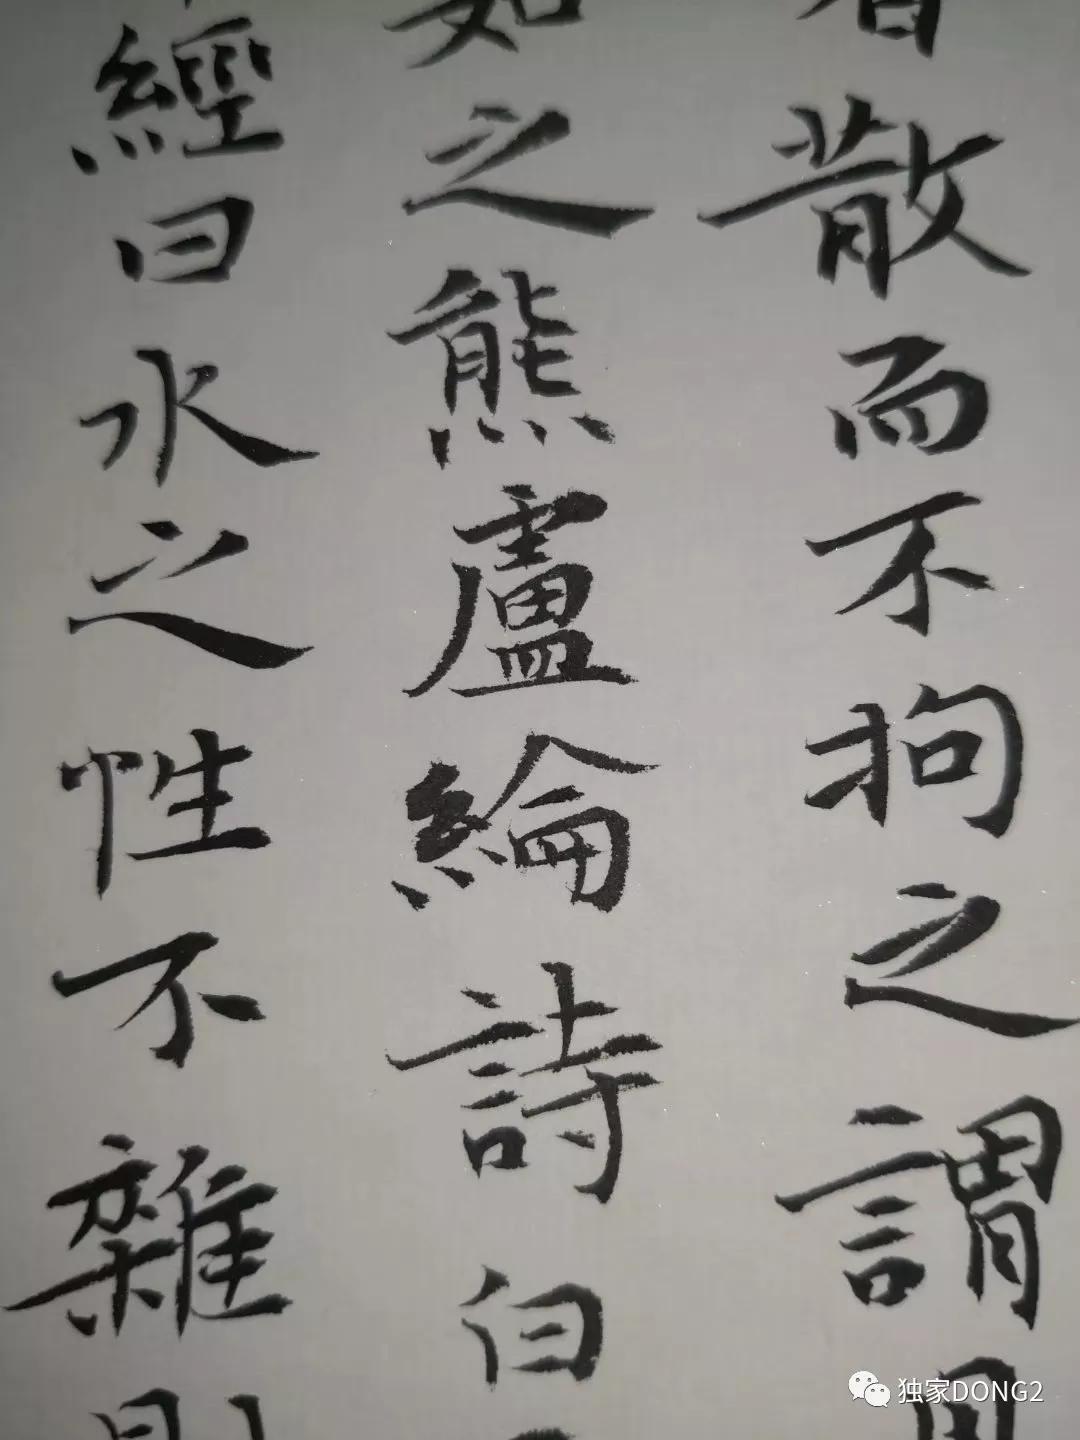 散而不拘之謂
如之熊盧綸詩白
經曰水之性不雜則
独家DONG2